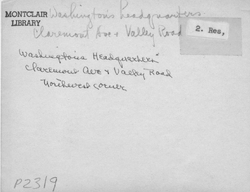 Washington's headquarters
MONTCLAIR
LIBRARY
Claremont Ave & Valley Road
2. Res,
Washington's Headquarters
Claremont Ave & Valley Road
Northwest corner
P2319